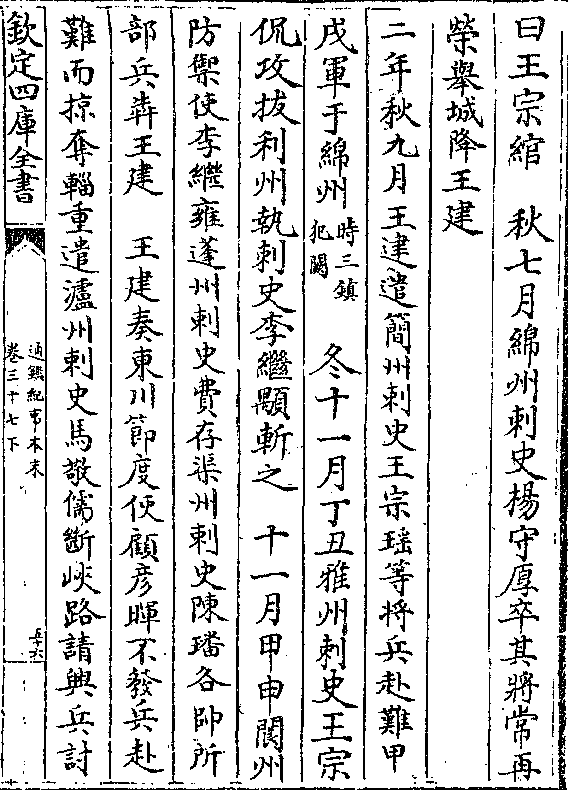 曰王宗綰　秋七月綿州刺史楊守厚卒其將常再
榮舉城降王建
二年秋九月王建遣簡州刺史王宗瑤等將兵赴難甲
戌軍于綿州時三鎮犯闕　冬十一月丁丑雅州刺史王宗
侃攻拔利州執刺史李繼顒斬之　十一月甲申閬州
防禦使李繼雍蓬州刺史費存渠州刺史陳璠各帥所
部兵犇王建　王建奏東川節度使顧彦暉不發兵赴
難而掠奪輜重遣瀘州刺史馬敬儒斷峽路請興兵討
欽定四庫全書
通鑑紀事本末
卷三十七下
五十六